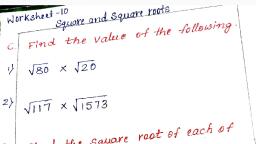 Worksheet-10
Square and Square roots
C. Find the value of the following.
1) √80 × √20
2) √117 × √1573
the square root of each of